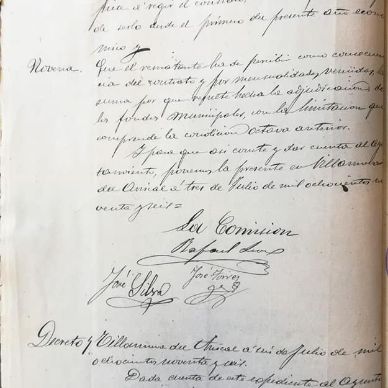 pua á regir el contrato,
de serlo desde el primero del presente año econo
mico y
Novena. Que el rematante ha de percibir como consecuen
cia del contrato y por mensualidades vencidas, la
suma por que resulte hecha la adjudicacion de
los fondos municipales, con la limitacion que
comprende la condicion octava anterior.
Y para que asi conste y dar cuenta al Ayun
tamiento, ponemos la presente en Villanueva
del Ariscal á tres de Julio de mil ochocientos no
venta y seis =
La Comision
Rafael
José Silva José Torres
Decreto y Villanueva del Ariscal á seis de Julio de mil
ochocientos noventa y seis.
Dada cuenta de este expediente al Ayunta